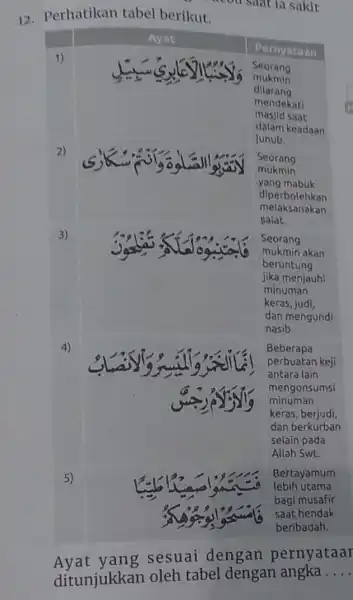 saat ia sakit
12. Perhatikan tabel berikut.
Ayat
Pernyataan
1)
وَلَا جُنُبًا إِلَّا عَابِرِي سَبِيلٍ
Seorang
mukmin
dilarang
mendekati
masjid saat
dalam keadaan
junub.
2)
لَا تَقْرَبُوا الصَّلٰوةَ وَأَنْتُمْ سُكَارٰى
Seorang
mukmin
yang mabuk
diperbolehkan
melaksanakan
salat.
3)
فَاجْتَنِبُوْهُ لَعَلَّكُمْ تُفْلِحُوْنَ
Seorang
mukmin akan
beruntung
jika menjauhi
minuman
keras, judi,
dan mengundi
nasib
4)
إِنَّمَا الْخَمْرُ وَالْمَيْسِرُ وَالْأَنْصَابُ
وَالْأَزْلَامُ رِجْسٌ
Beberapa
perbuatan keji
antara lain
mengonsumsi
minuman
keras, berjudi,
dan berkurban
selain pada
Allah Swt.
5)
فَتَيَمَّمُوْا صَعِيْدًا طَيِّبًا
فَامْسَحُوْا بِوُجُوْهِكُمْ
Bertayamum
lebih utama
bagi musafir
saat hendak
beribadah.
Ayat yang sesuai dengan pernyataan
ditunjukkan oleh tabel dengan angka . . . .